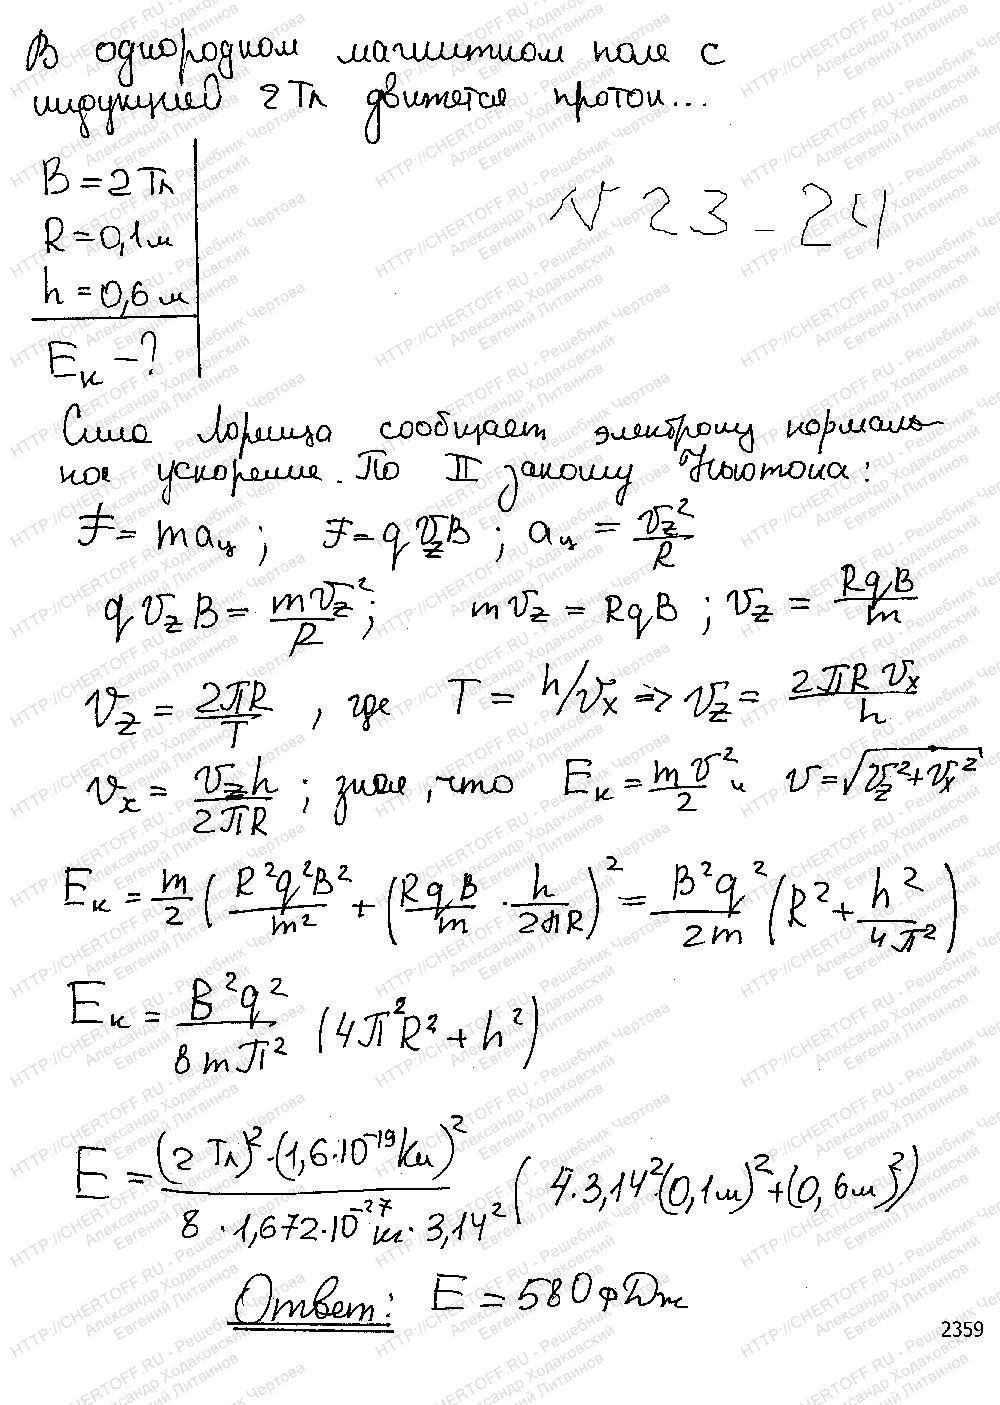 В однородном магнитном поле с
индукцией 2 Тл движется протон...
B = 2 Тл
R = 0,1 м
h = 0,6 м
Eк - ?
N 23-24
Сила Лоренца сообщает электрону нормаль-
ное ускорение. По II закону Ньютона:
F = maц ; F = qvzB ; aц = vz²/R
qvzB = mvz²/R ; mvz = RqB ; vz = RqB/m
vz = 2πR/T , где T = h/vx => vz = 2πRvx/h
vx = vzh/2πR ; зная, что Eк = mv²/2 и v = √vz²+vx²
Eк = m/2 (R²q²B²/m² + (RqB/m · h/2πR)² = B²q²/2m (R² + h²/4π²)
Eк = B²q²/8mπ² (4π²R² + h²)
E = (2 Тл)²·(1,6·10⁻¹⁹Кл)²/8·1,672·10⁻²⁷кг·3,14² (4·3,14²·(0,1м)²+(0,6м)²)
Ответ: E = 580 фДж
2359
HTTP://CHERTOFF.RU - Решебник Чертова
Александр Ходаковский
Евгений Литвинов